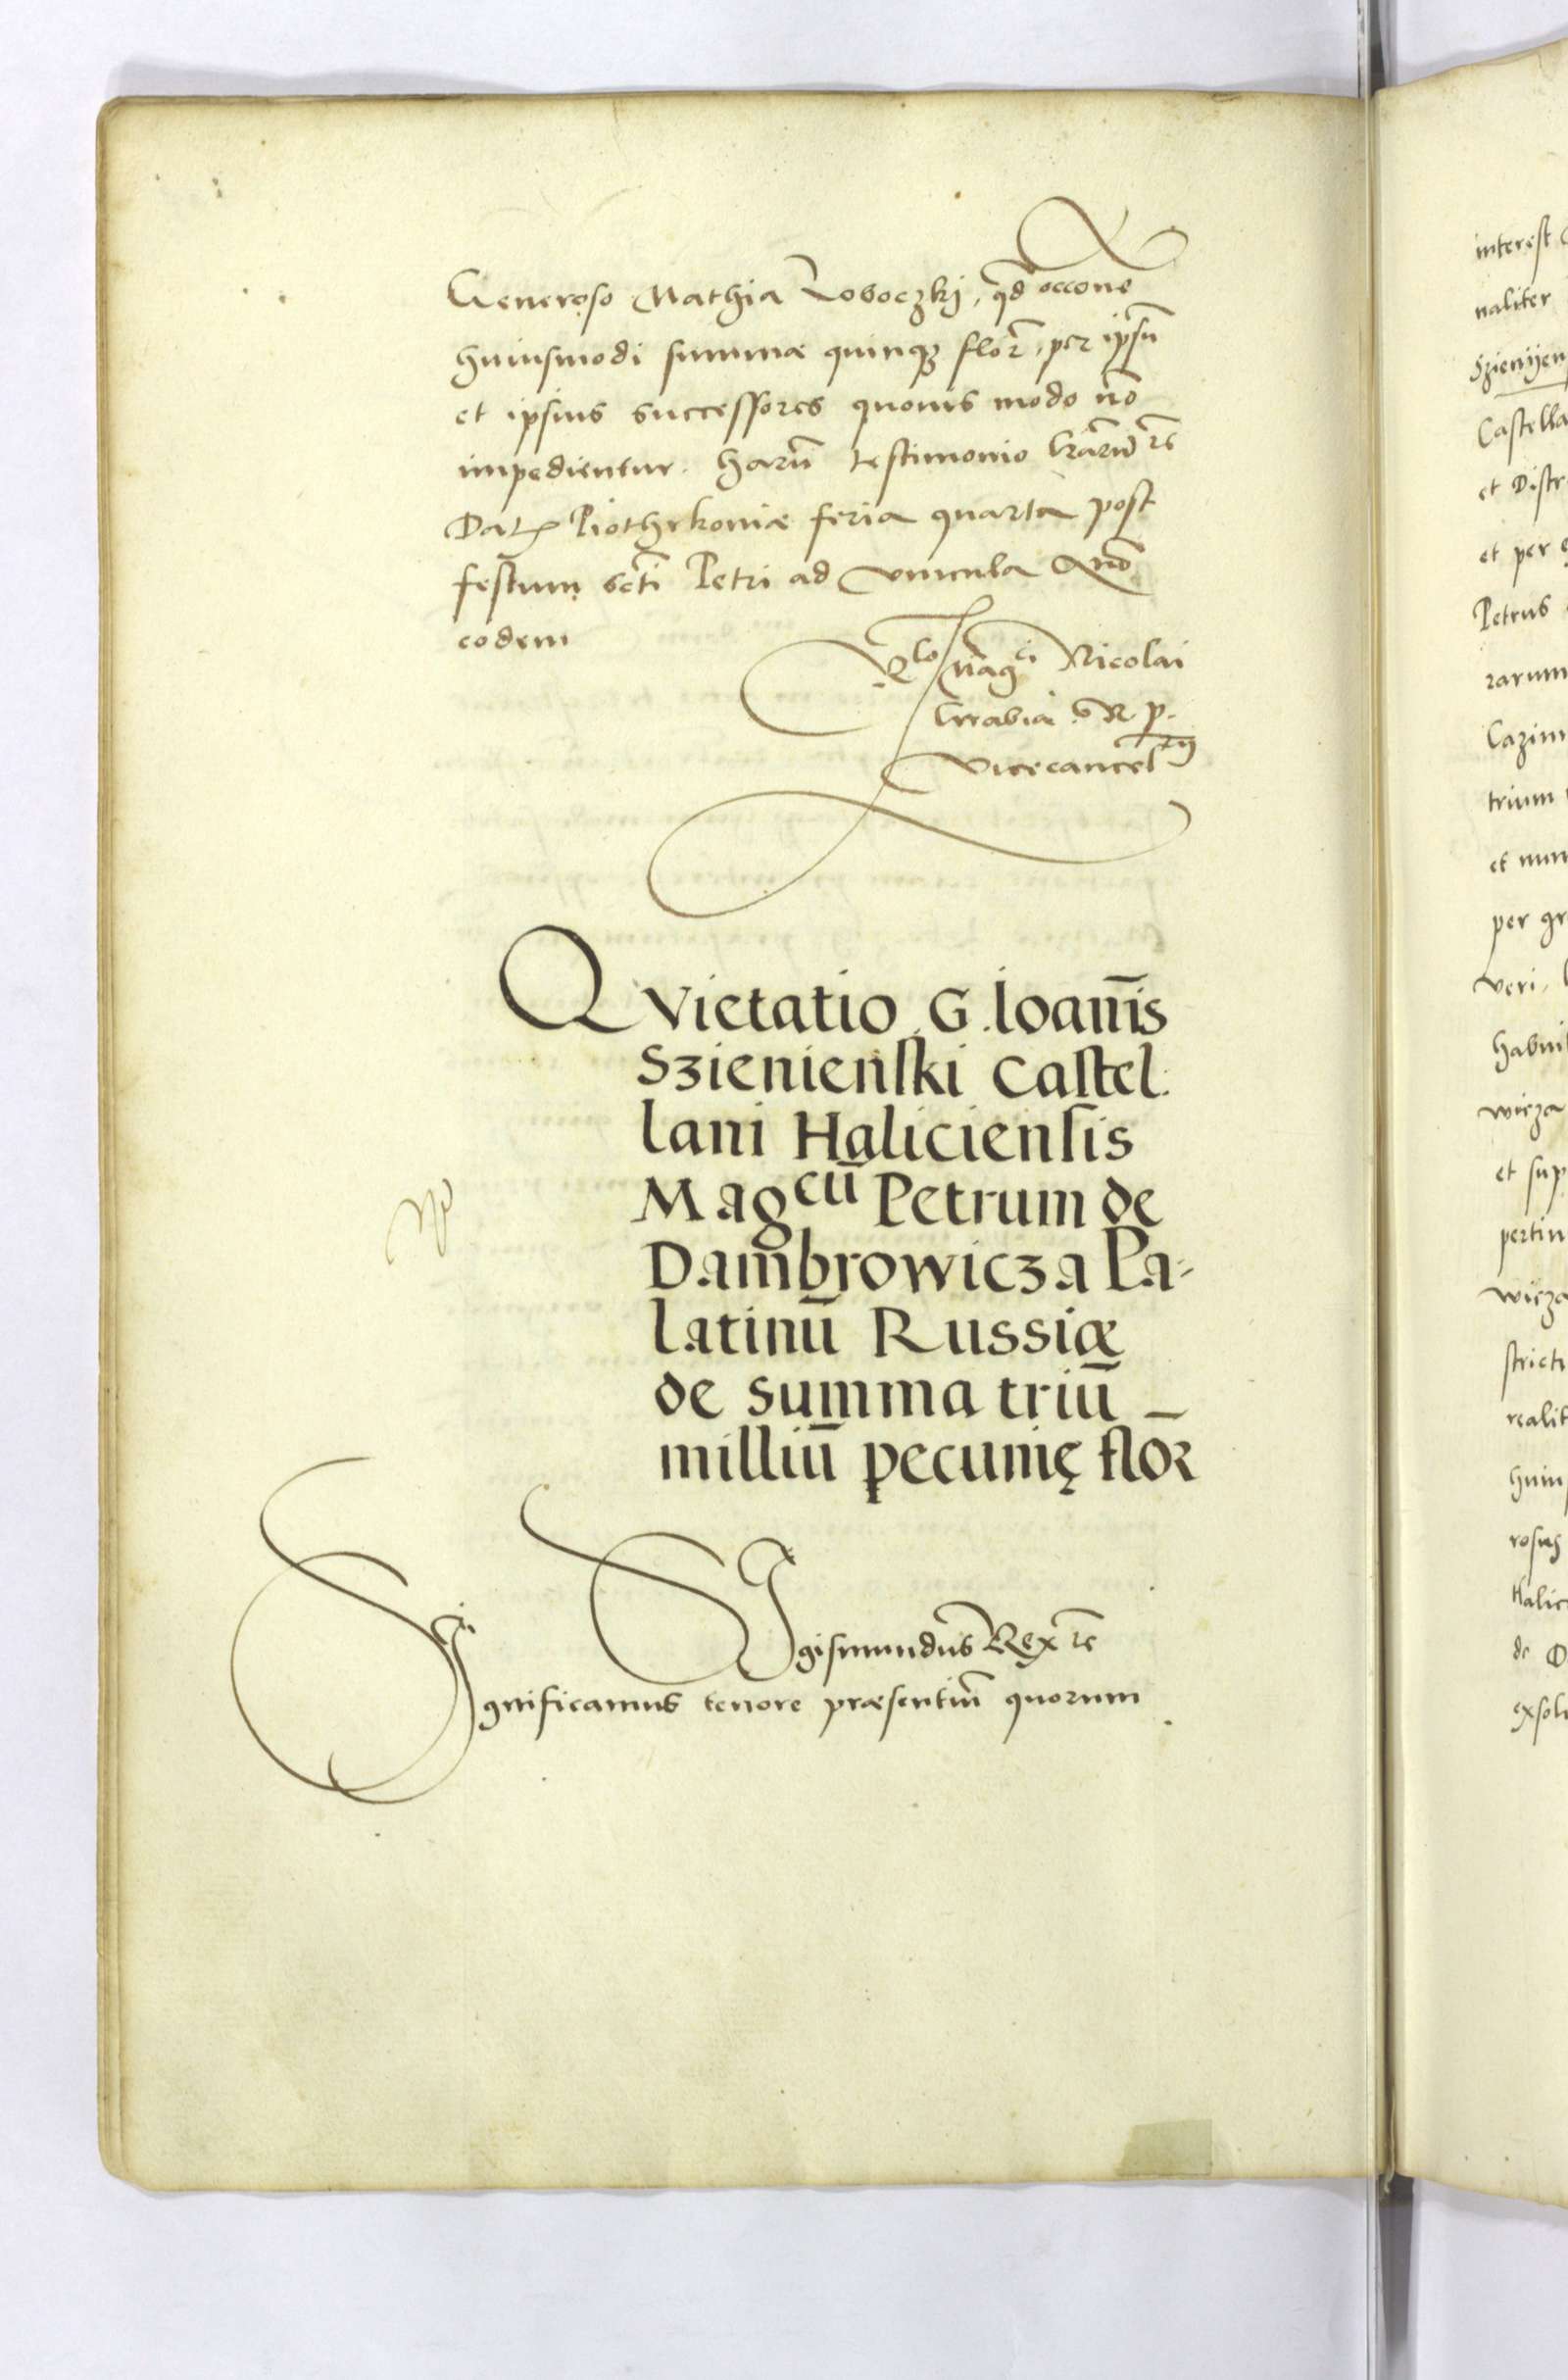 Generoso Mathia Loboczkj, qd occone
huiusmodi summæ quinqȝ florꝭ, per ipsū
et ipsius successores quouis modo nō
impedientur. harū testimonio lrārū rc
Datꝭ Piothrkoniæ feria quarta post
festum scti Petri ad vincula Anō
eodem
Rlo magci Nicolai
Grabia . R. P.
vicecancel
QVietatio .G. Ioannīs
Szienienski Castel
lani Haliciensis
Magcū Petrum de
Dambrowicza Pa-
latinū Russiæ
de summa triū
milliū pecunię flor
SIgismundus Rex rc
SIgnificamus tenore præsentiū quorum
interest
naliter
Szienijen
Castella
et Distr
et per
Petrus
rarum
Cazim
trium
et num
per gr
veri,
habui
wicza
et sup
pertin
wicza
stricti
realit
huiu
rosus
Halic
de D
exsol